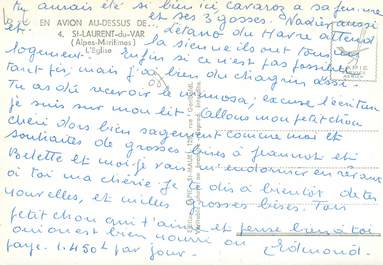 Tu aurais été si bien ici cavaroz a sa femme
et ses 3 gosses. Nadier aussi
EN AVION AU-DESSUS DE...
4. St-LAURENT-du-VAR
(Alpes-Maritimes)
L'Eglise
et détano du Havre attend
la sienne ils ont tous un
logement. Enfin si ce n'est pas possible
tant pis, mais j'ai bien du chagrin aussi.
Tu as dû recevoir le mimosa; excuse l'écriture
je suis sur mon lit. Allons mon petit chou
chéri dors bien sagement comme moi et
souhaites de grosses bises à Jeannot et
Belette et moi je vais m'endormir en rêvant
à toi ma chérie je te dis à bientôt de tes
nouvelles, et milles grosses bises. Ton
petit chou qui t'aime et pense bien à toi
ici on est bien nourri on
paye 1.450 F par jour. Edmond.